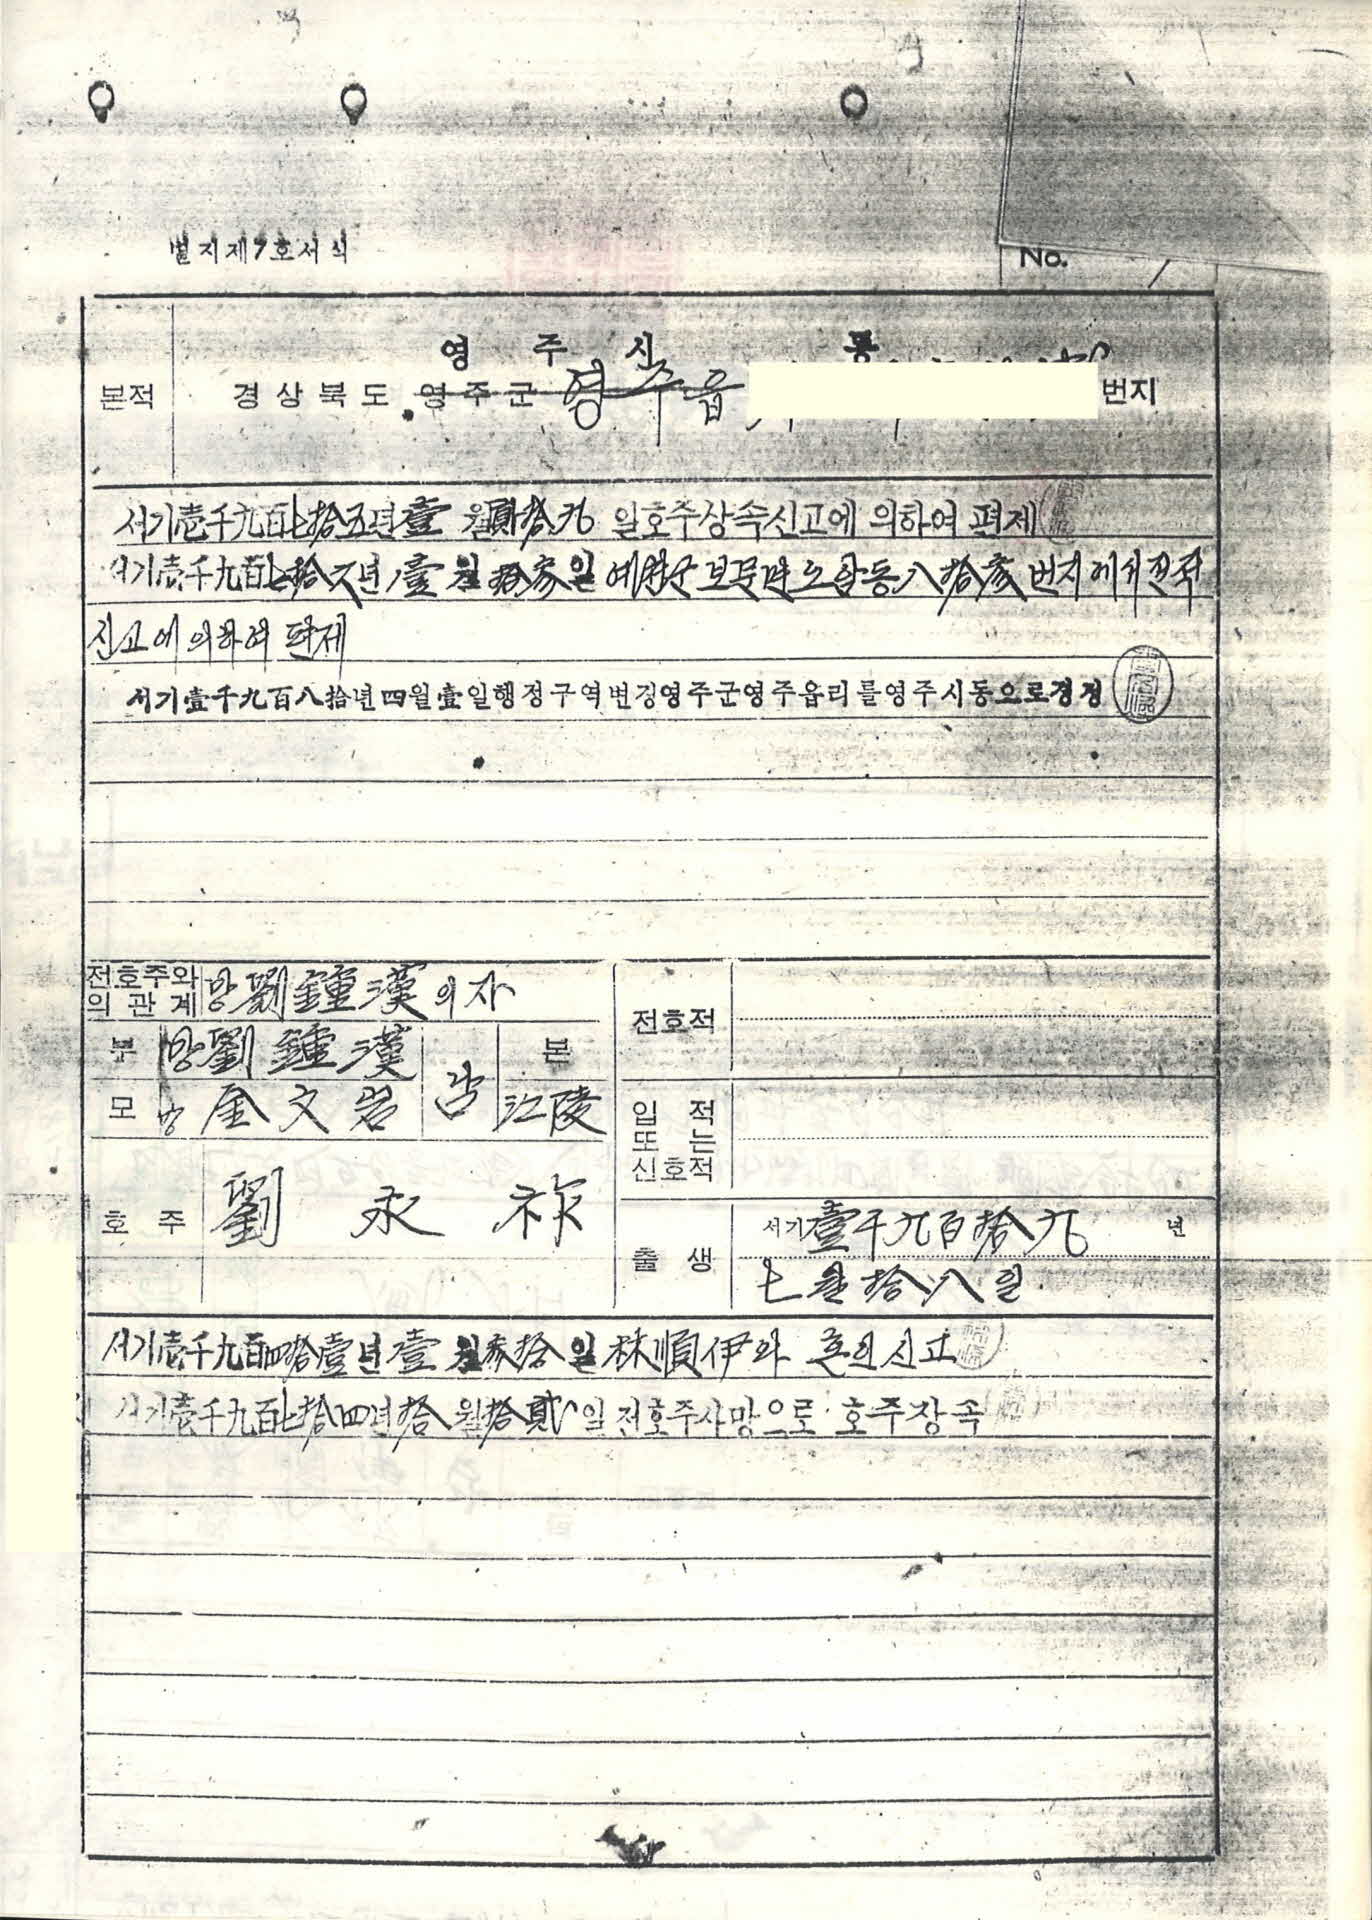 별지제7호서식
No.
영 주 시 동
본적 경상북도 영주군 영주읍 번지
서기壹千九百七拾五년壹월貳拾九일호주상속신고에 의하여 편제
서기壹千九百七拾 년壹월拾參일 예천군 보문면 오암동八拾參번지에서 전적
신고에 의하여 편제
서기壹千九百八拾년四월壹일행정구역변경영주군영주읍리를영주시동으로경정
전호주와의 관계 망劉鍾漢의자
부 망劉鍾漢 본
모 망金文岩 江陵
호주 劉永祚
전호적
입적 또는 신호적
출생 서기壹千九百拾九년
七월拾八일
서기壹千九百四拾壹년壹월參拾일林順伊와 혼인신고
서기壹千九百七拾四년拾월拾貳일전호주사망으로 호주상속